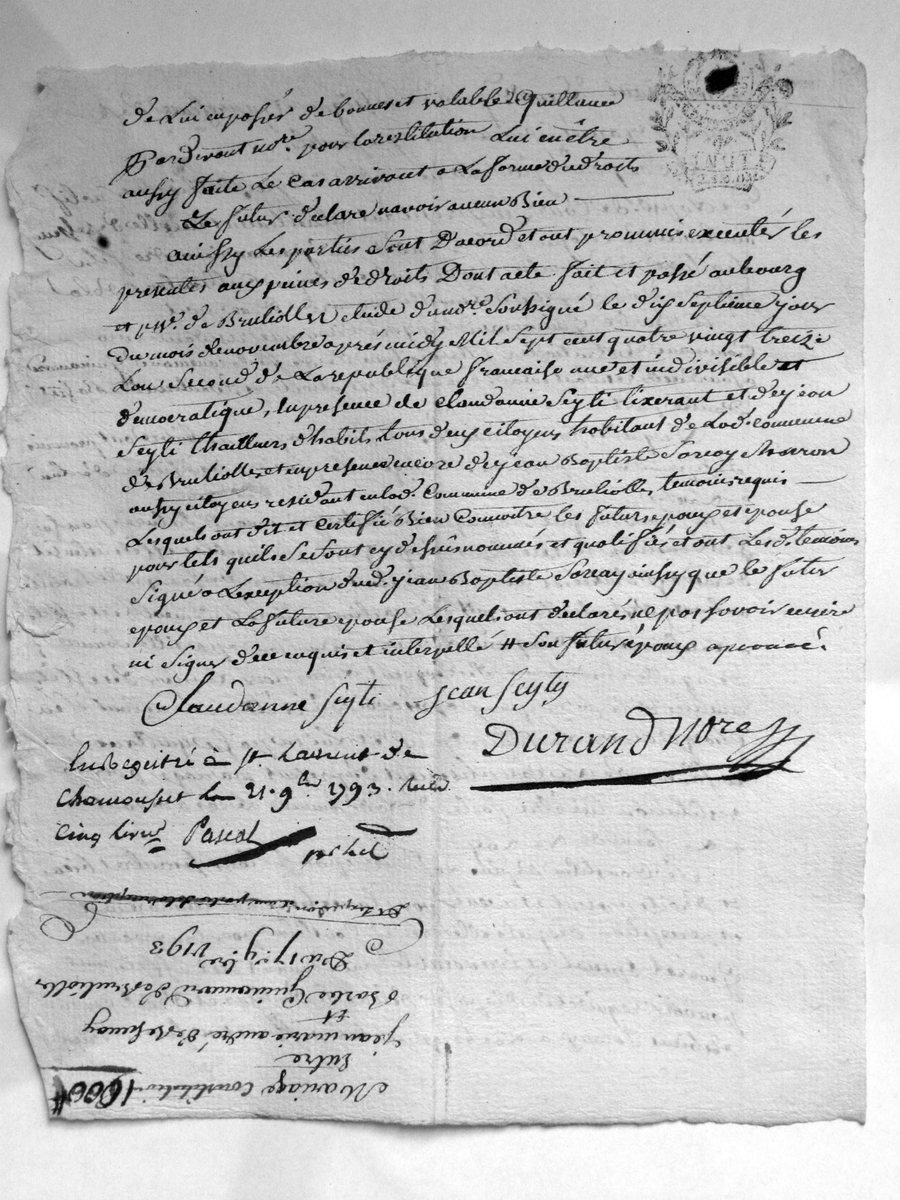 de Lui en passér de bonnes et valable Quittance
Pardevant nore. pour la restitution Lui en être
aussy faite Le Cas arrivant a La forme du droits
Le futur déclare navoir aucun Bien
ainssy Les parties Sont Dacord et ont promis exécutér les
presentes aux peines de droits Dont acte fait et passé au bourg
et de Bruliolles etude d'u nre. Soussigné le dix Septieme jour
Du mois de novembre après midy Mil Sept cent quatre vingt treize
L'an Second de La republique francaise une et indivisible et
democratique, En presence de Claud'anne Seyti tixerant et de jean
Seyti thailleur d'habits tous deux Citoyens habitant de Lad. Commune
de Bruliolles, et en presence encore de jean Baptiste Sorcay Masson
aussy Citoyens residant en lad. Commune de Bruliolles temoins requis
Lesquels ont dit et Certifié Bien Connoitre les futurs epoux et epouse
pour tels quils Se Sont cy dessus nommés et qualifiés et ont Les ds. temoins
Signé a L'exception dud. jean Baptiste Sorcay ainssy que le futur
epoux et La future epouse Lesquels ont déclaré ne pas Savoir ecrire
ni Signer de ce enquis et interpellé # Son futur époux aprouvé.
Claudanne Seyti Jean Seyty
Durand Nore
Enregistré à St Laurent de
Chamousset le 21. 9bre 1793. Reçu
Cinq livres Pascal
Mariage Constitution 1600#
Entre
jean marie andré de
Et
Guinamard de Bruliolles
Du 17. 9bre
1793